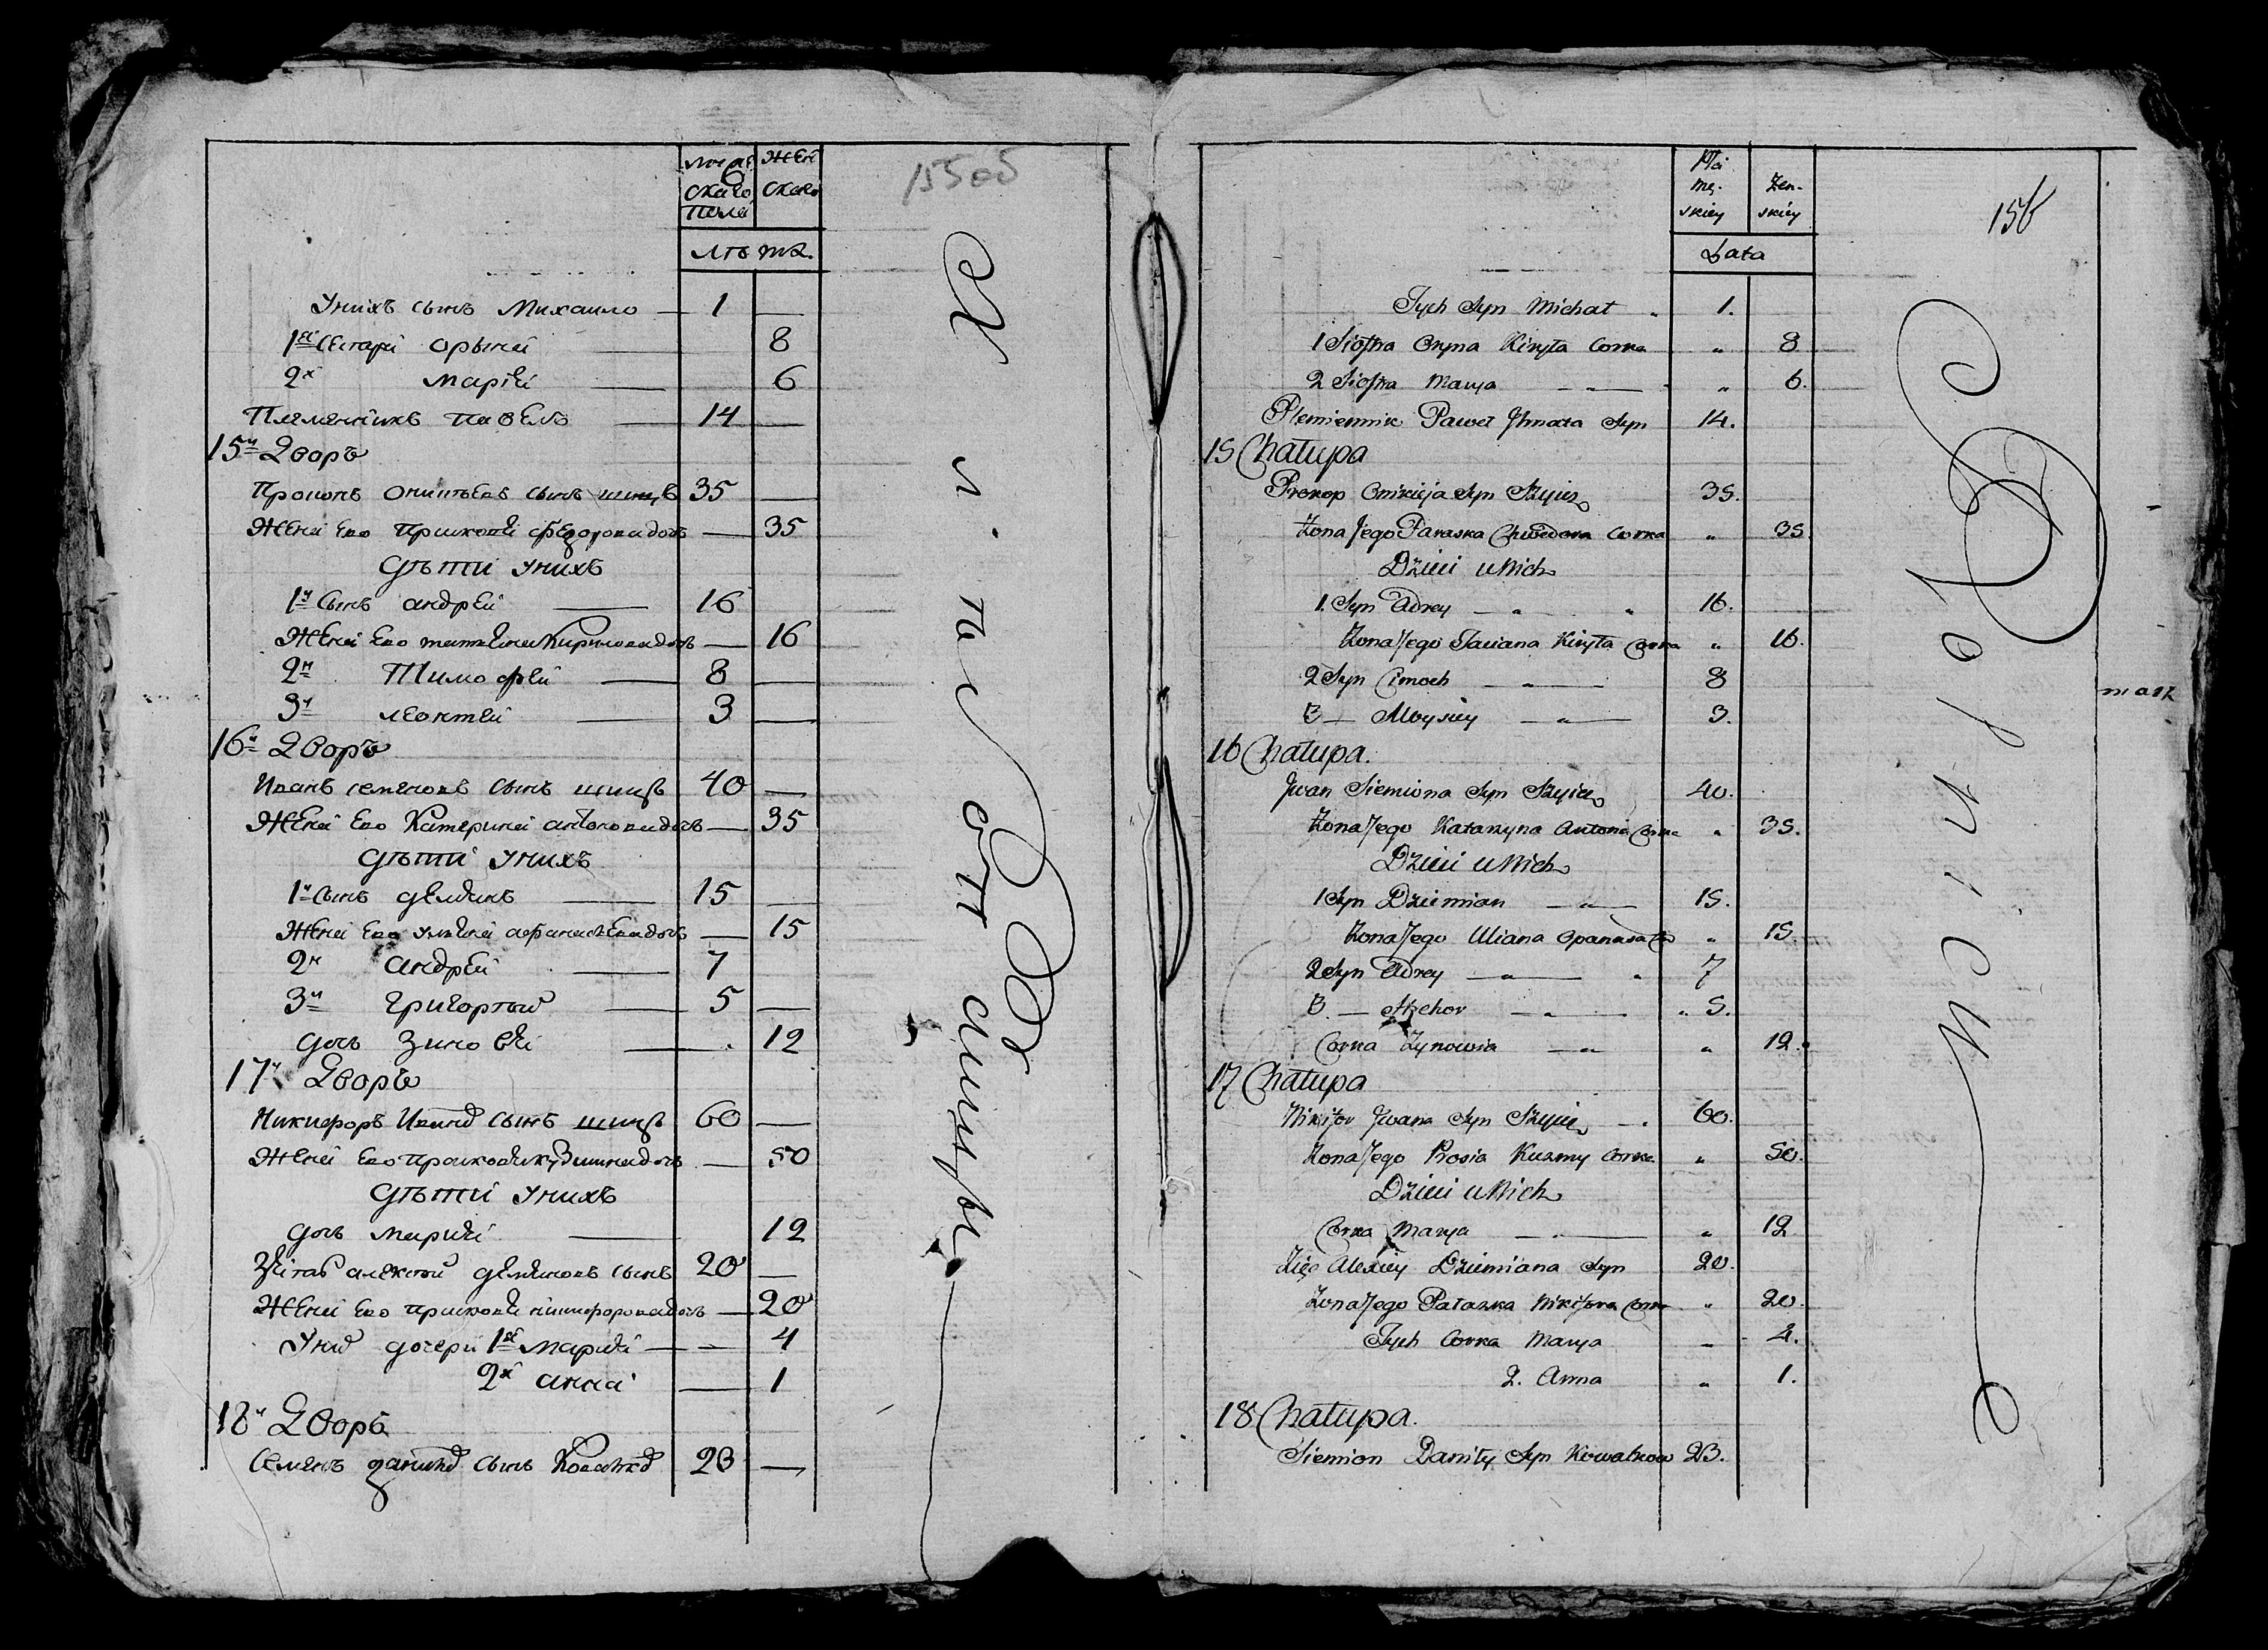 мужескаго пола
женскаго
лѣта
155об
У нихъ сынъ Михаило 1
1я Сестра орына 8
2я мария 6
Племяникъ павелъ 14
15й Дворъ
Прокопъ сынъ шицъ 35
Жена Ево прасковя федорова дочь 35
дѣти у нихъ
1й Сынъ андрей 16
Жена Ево татяна Кирилова дочь 16
2й Тимофей 8
3й леонтей 3
16й Дворъ
Иванъ семеновъ сынъ шицъ 40
Жена Ево Катерина антонова дочь 35
дѣти у нихъ
1й Сынъ демянъ 15
Жена Ево уляна афанасьева дочь 15
2й андрей 7
3й григорый 5
дочь зиновья 12
17й Дворъ
Никифоръ Иванов сынъ шицъ 60
Жена Ево прасковя кузмина дочь 50
дѣти у нихъ
дочь мария 12
Зять алексей демяновъ сынъ 20
Жена Ево прасковя никифорова дочь 20
У них дочери 1я мария 4
2я анна 1
18й Дворъ
Семенъ данилов сынъ Ковалков 23
Płci męskiey
Żenskiey
Lata
156
Tych Syn Michał 1.
1 Siostra Oryna Kiryła Corka 8
2 Siostra Marya 6.
Plemiennik Paweł Ihnata Syn 14.
15 Chałupa
Prokop Onikieja Syn Szyiec 35.
Żona Jego Paraska Chwedora Corka 35
Dzieci u Nich
1. Syn Adrey 16.
Żona Jego Taciana Kiryła Corka 16.
2 Syn Cimoch 8
3 — Alloysiey 3.
16 Chałupa.
Jwan Siemiona Syn Szyiec 40.
Żona Jego Katarzyna Antona Corka 35.
Dzieci u Nich
1 Syn Dziemian 15.
Żona Jego Uliana Opanasa Co 15
2 Syn Adrey 7
3. — Hrehor 5.
Corka Zynowia 12.
17 Chałupa
Nikifor Jwana Syn Szyiec 60.
Żona Jego Prosia Kuzmy Corka 50.
Dzieci u Nich
Corka Marya 12
Zięć Alexiey Dziemiana Syn 20.
Żona Jego Paraska Nikifora Corka 20.
Tych Corka Marya 4.
2. Anna 1.
18 Chałupa.
Siemion Daniły Syn Kowalkow 23.